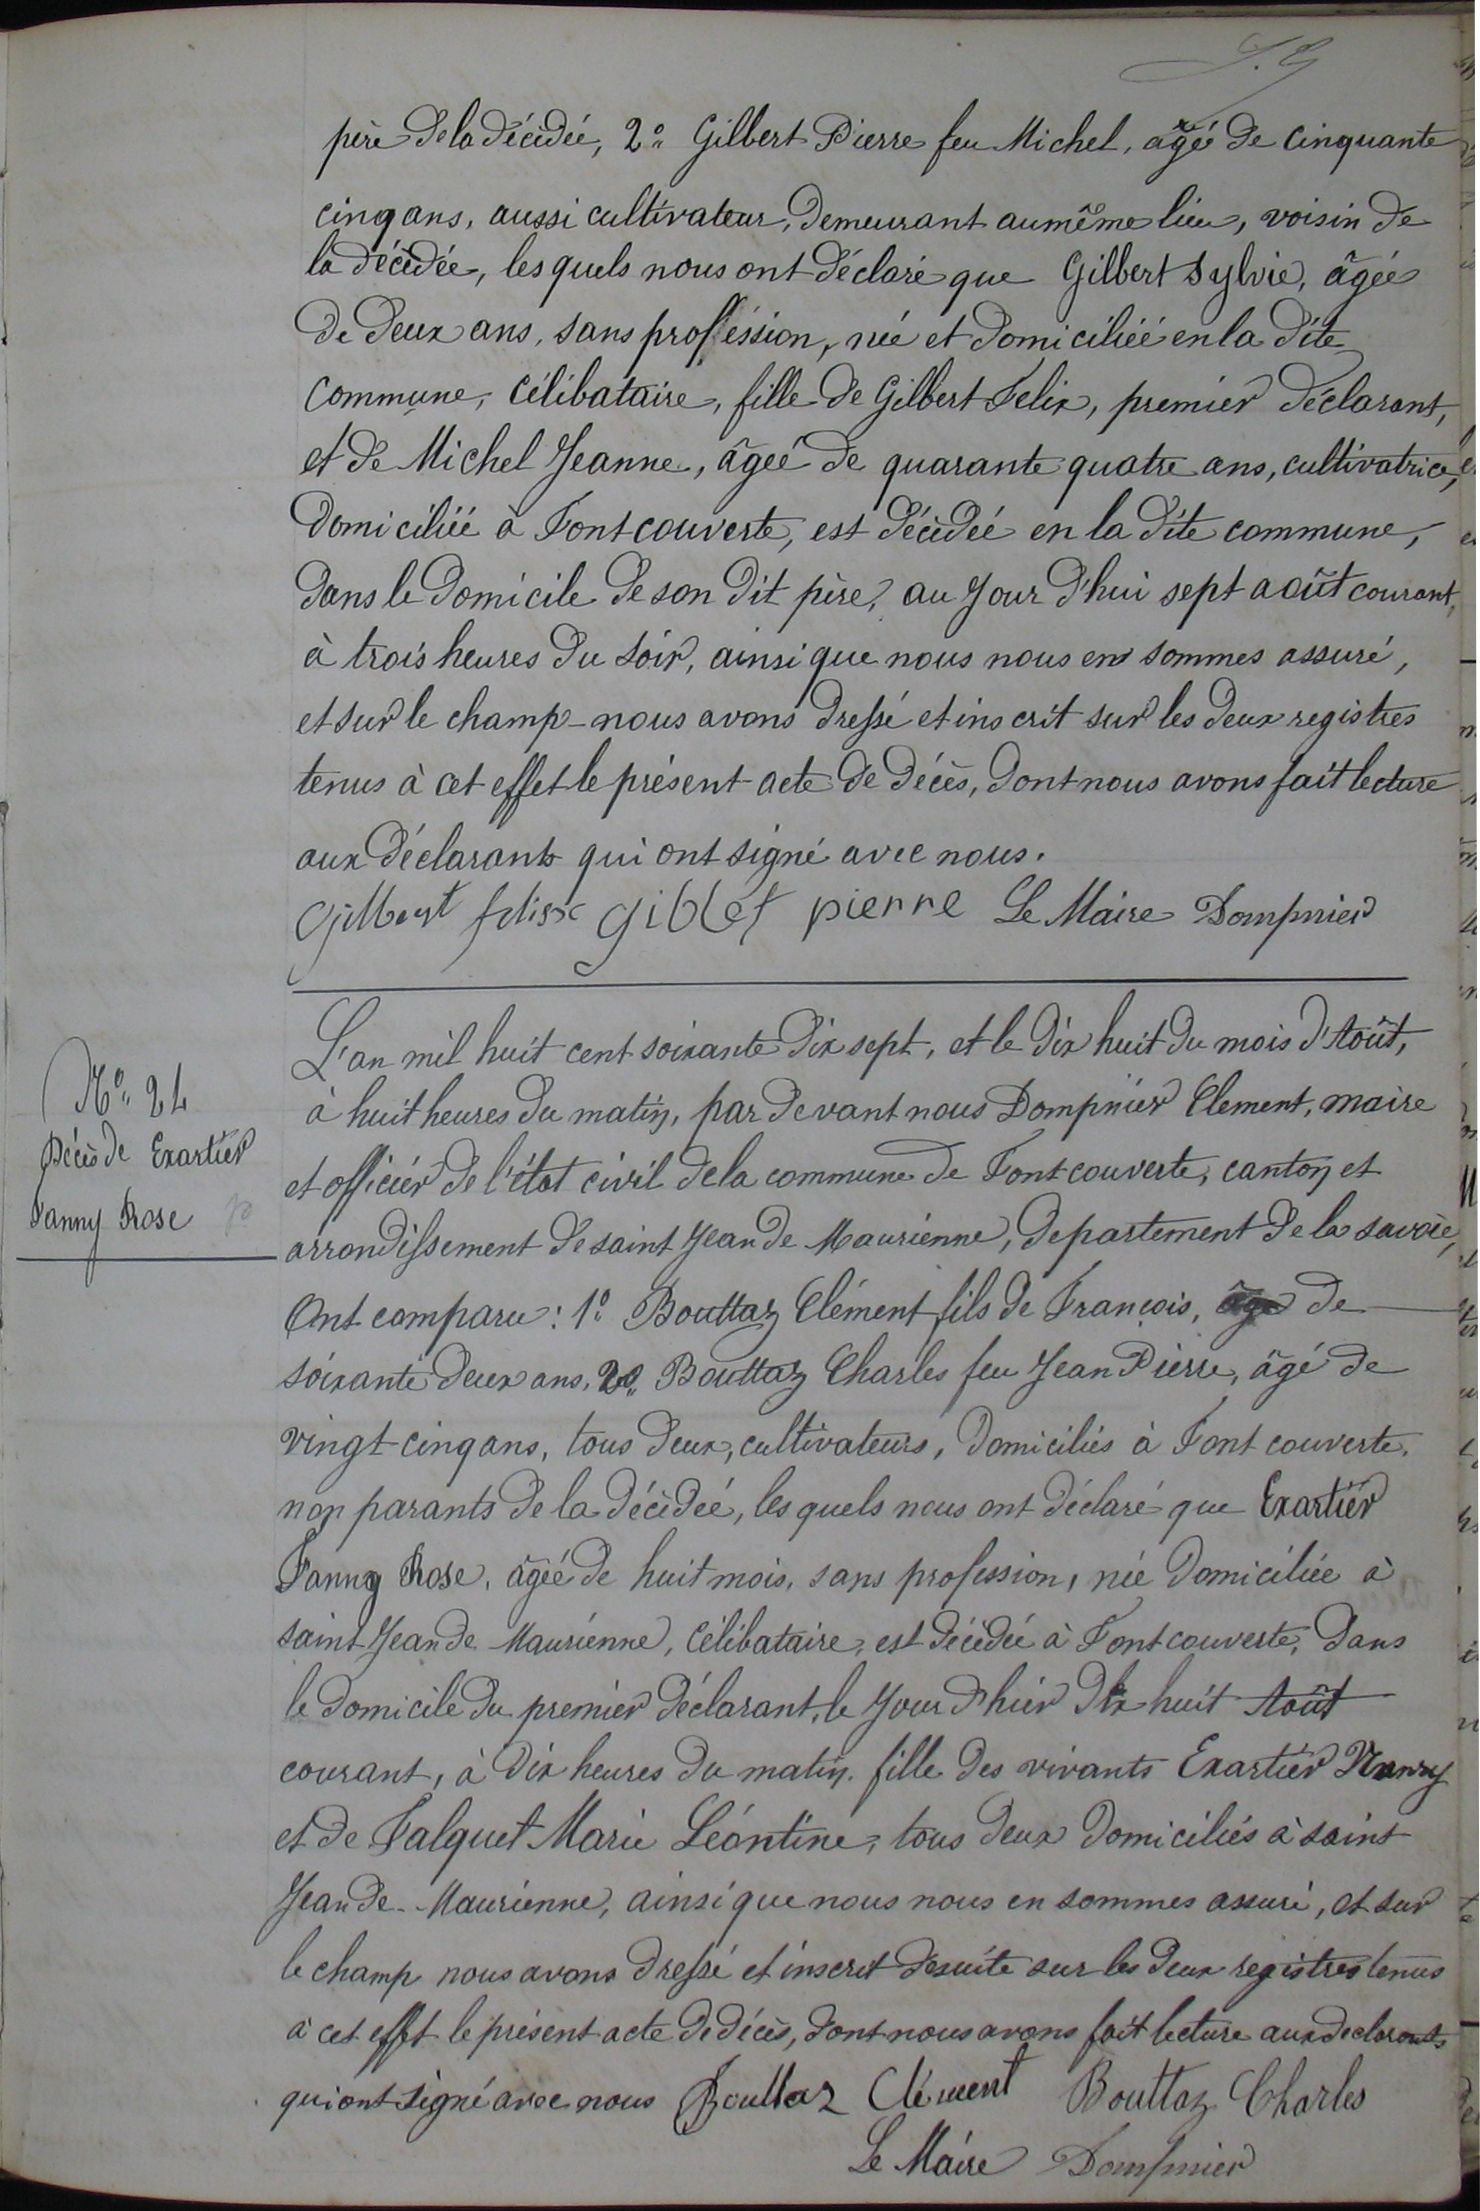 père de la décédée, 2° Gilbert Pierre feu Michel, âgé de cinquante
cinq ans, aussi cultivateur, demeurant au même lieu, voisin de
la décédée, les quels nous ont déclaré que Gilbert Sylvie, âgée
de deux ans, sans profféssion, née et domiciliéé en la dite
commune, célibataire, fille de Gilbert Felix, premier déclarant,
et de Michel Jeanne, âgeé de quarante quatre ans, cultivatrice,
domiciliéé à Fontcouverte, est décédéé en la dite commune,
dans le domicile de son dit père, au jour d'hui sept août courant,
à trois heures du soir, ainsi que nous nous en sommes assuré,
et sur le champ nous avons dressé et inscrit sur les deux registres
tenus à cet effet le présent acte de décès, dont nous avons fait lecture
aux déclarants qui ont signé avec nous.
Gilbert felix giblet pierre Le Maire Dompnier
N° 24
Décès de Exartier
Fanny Rose
L'an mil huit cent soixante dix sept, et le dix huit du mois d'Août,
à huit heures du matin, par devant nous Dompnier Clement, maire
et officier de l'état civil de la commune de Fontcouverte, canton et
arrondissement de saint Jean de Maurienne, departement de la savoie,
Ont comparu : 1° Bouttaz Clément fils de François, âgé de
soixante deux ans, 2° Bouttaz Charles feu Jean Pierre, âgé de
vingt cinq ans, tous deux, cultivateurs, domiciliés à Font couverte,
non parants de la décédeé, les quels nous ont déclaré que Exartier
Fanny Rose, âgéé de huit mois, sans profession, née domiciliée à
saint Jean de Maurienne, célibataire, est décédée à Fontcouverte, dans
le domicile du premier déclarant, le jour d'hier dix huit Août
courant, à dix heures du matin. fille des vivants Exartier
et de Falquet Marie Léontine, tous deux domiciliés à saint
Jean de Maurienne, ainsi que nous nous en sommes assuré, et sur
le champ nous avons dressé et inscrit desuite sur les deux registres tenus
à cet effet le présent acte de décès, dont nous avons fait lecture aux declarants
qui ont signé avec nous Bouttaz Clément Bouttaz Charles
Le Maire Dompnier